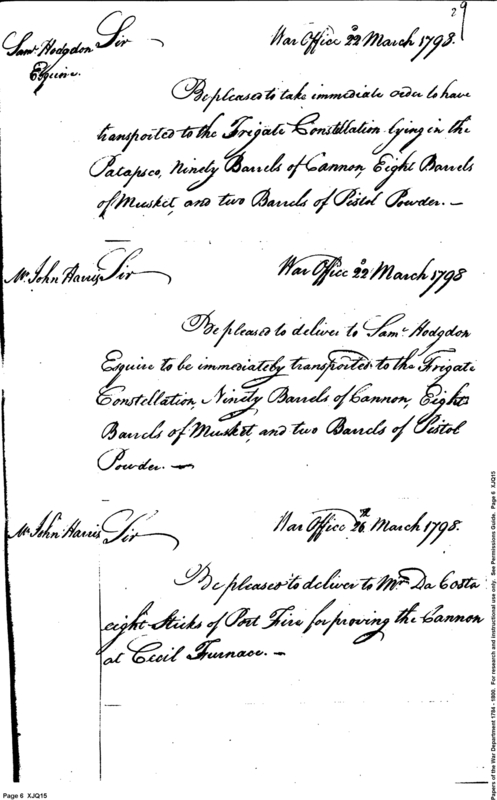 29
Saml. Hodgdon
Esquire.
Sir
War Office 22d March 1798.
Be pleased to take immediate order to have
transported to the Frigate Constellation lying in the
Patapsco, Ninety Barrels of Cannon, Eight Barrels
of Musket, and two Barrels of Pistol Powder. —
Mr. John Harris
Sir
War Office 22d March 1798
Be pleased to deliver to Saml. Hodgdon
Esquire to be immediately transported to the Frigate
Constellation, Ninety Barrels of Cannon, Eight
Barrels of Musket, and two Barrels of Pistol
Powder. —
Mr. John Harris
Sir
War Office 26th March 1798.
Be pleased to deliver to Mr. Da Costa
eight Sticks of Port Fire for proving the Cannon
at Cecil Furnace. —
Page 6 XJQ15
Papers of the War Department 1784 - 1800. For research and instructional use only. See Permissions Guide. Page 6 XJQ15